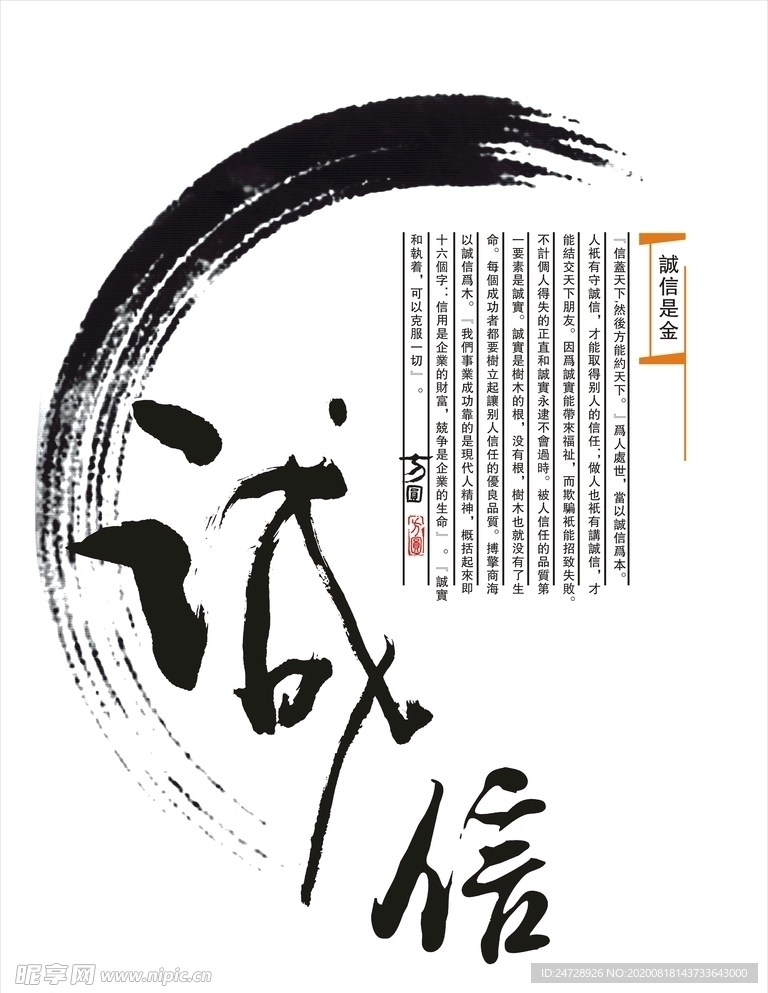 誠信是金
『信蓋天下,然後方能約天下。』爲人處世，當以誠信爲本。
人衹有守誠信，才能取得别人的信任；做人也衹有講誠信，才
能結交天下朋友。因爲誠實能帶來福祉，而欺騙衹能招致失敗。
不計個人得失的正直和誠實永逮不會過時。被人信任的品質第
一要素是誠實。誠實是樹木的根，没有根，樹木也就没有了生
命。每個成功者都要樹立起讓别人信任的優良品質。搏擎商海
以誠信爲木。『我們事業成功靠的是現代人精神，概括起來即
十六個字：信用是企業的財富，競争是企業的生命』。『誠實
和執着，可以克服一切』。
方圓
方圓
誠
信
昵享网 www.nipic.cn
ID:24728926 NO:20200818143733643000